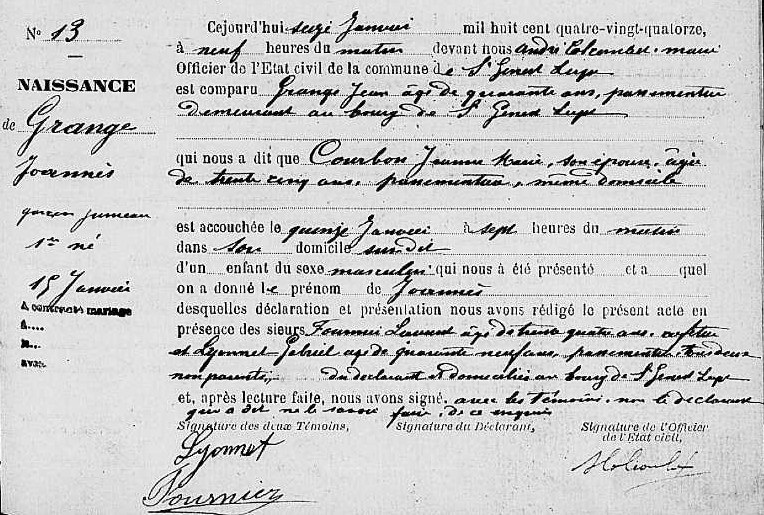 N° 13
NAISSANCE
de Grange
Joannès
garçon jumeau
1er né
15 Janvier
A contracté mariage
A....
le...
avec
Cejourd'hui seize Janvier mil huit cent quatre-vingt-quatorze,
à neuf heures du matin devant nous André Colcombet, maire
Officier de l'Etat civil de la commune de St Genest Lerpt
est comparu Grange Jean âgé de quarante ans, passementier
demeurant au bourg de St Genest Lerpt
qui nous a dit que Courbon Jeanne Marie, son épouse, âgée
de trente cinq ans, passementière, même domicile
est accouchée le quinze Janvier à sept heures du matin
dans son domicile susdit
d'un enfant du sexe masculin qui nous a été présenté et a quel
on a donné le prénom de Joannès
desquelles déclaration et présentation nous avons rédigé le présent acte en
présence des sieurs Fournier Laurent âgé de trente quatre ans,
et Lyonnet Gabriel âgé de quarante neuf ans, passementier tous deux
non parents, du déclarant et domiciliés au bourg de St Genest Lerpt
et, après lecture faite, nous avons signé avec les témoins, non le déclarant
qui a dit ne le savoir faire, de ce enquis
Signature des deux Témoins, Signature du Déclarant, Signature de l'Officier
de l'Etat civil,
Lyonnet
Fournier